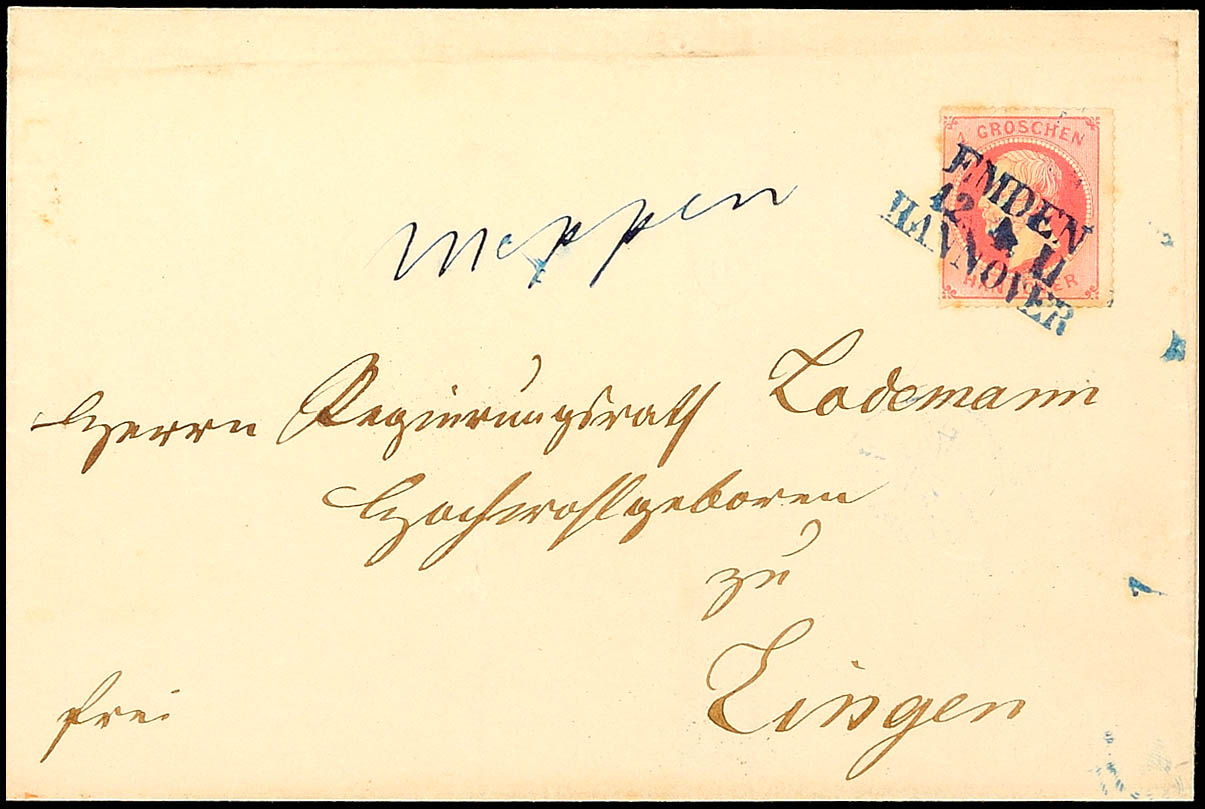 1 GROSCHEN
HANNOVER
EMDEN
12 11
HANNOVER
Meppen
Herrn Regierungsrath Lodemann
Hochwohlgeboren
zu
Lingen
frei